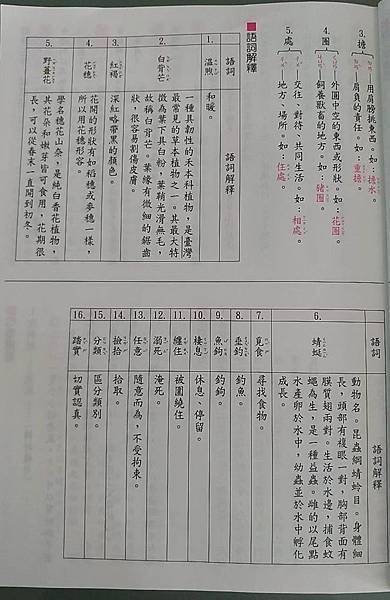 3. 擔
用肩膀挑東西。如：擔水。
肩負的責任。如：重擔。
4. 圈
外圓中空的東西或形狀。如：花圈。
飼養獸畜的地方。如：豬圈。
5. 處
交往、對待、共同生活。如：相處。
地方、場所。如：住處。
語詞解釋
語詞 語詞解釋
1. 溫煦 和暖。
2. 白背芒 一種具韌性的禾本科植物，是臺灣
最常見的草本植物之一。其最大特
徵為葉下具白粉，葉鞘光滑無毛，
故稱白背芒。葉緣有微細的鋸齒
狀，很容易割傷皮膚。
3. 紅褐 深紅略帶黑的顏色。
4. 花穗 花開的形狀有如稻穗或麥穗一樣，
所以用花穗形容。
5. 野薑花 學名穗花山奈，是純白香花植物，
其花朵和嫩芽皆可食用，花期很
長，可以從春末一直開到初冬。
語詞 語詞解釋
6. 蜻蜓 動物名。昆蟲綱蜻蛉目。身體細
長，頭部有複眼一對，胸部背面有
膜質翅兩對。生活於水邊，捕食蚊
蠅為生，是一種益蟲。雌的以尾點
水產卵於水中，幼蟲並於水中孵化
成長。
7. 覓食 尋找食物。
8. 垂釣 釣魚。
9. 魚鉤 釣鉤。
10. 棲息 休息、停留。
11. 纏住 被圍繞住。
12. 溺死 淹死。
13. 任意 隨意而為，不受拘束。
14. 撿拾 拾取。
15. 分類 區分類別。
16. 踏實 切實認真。